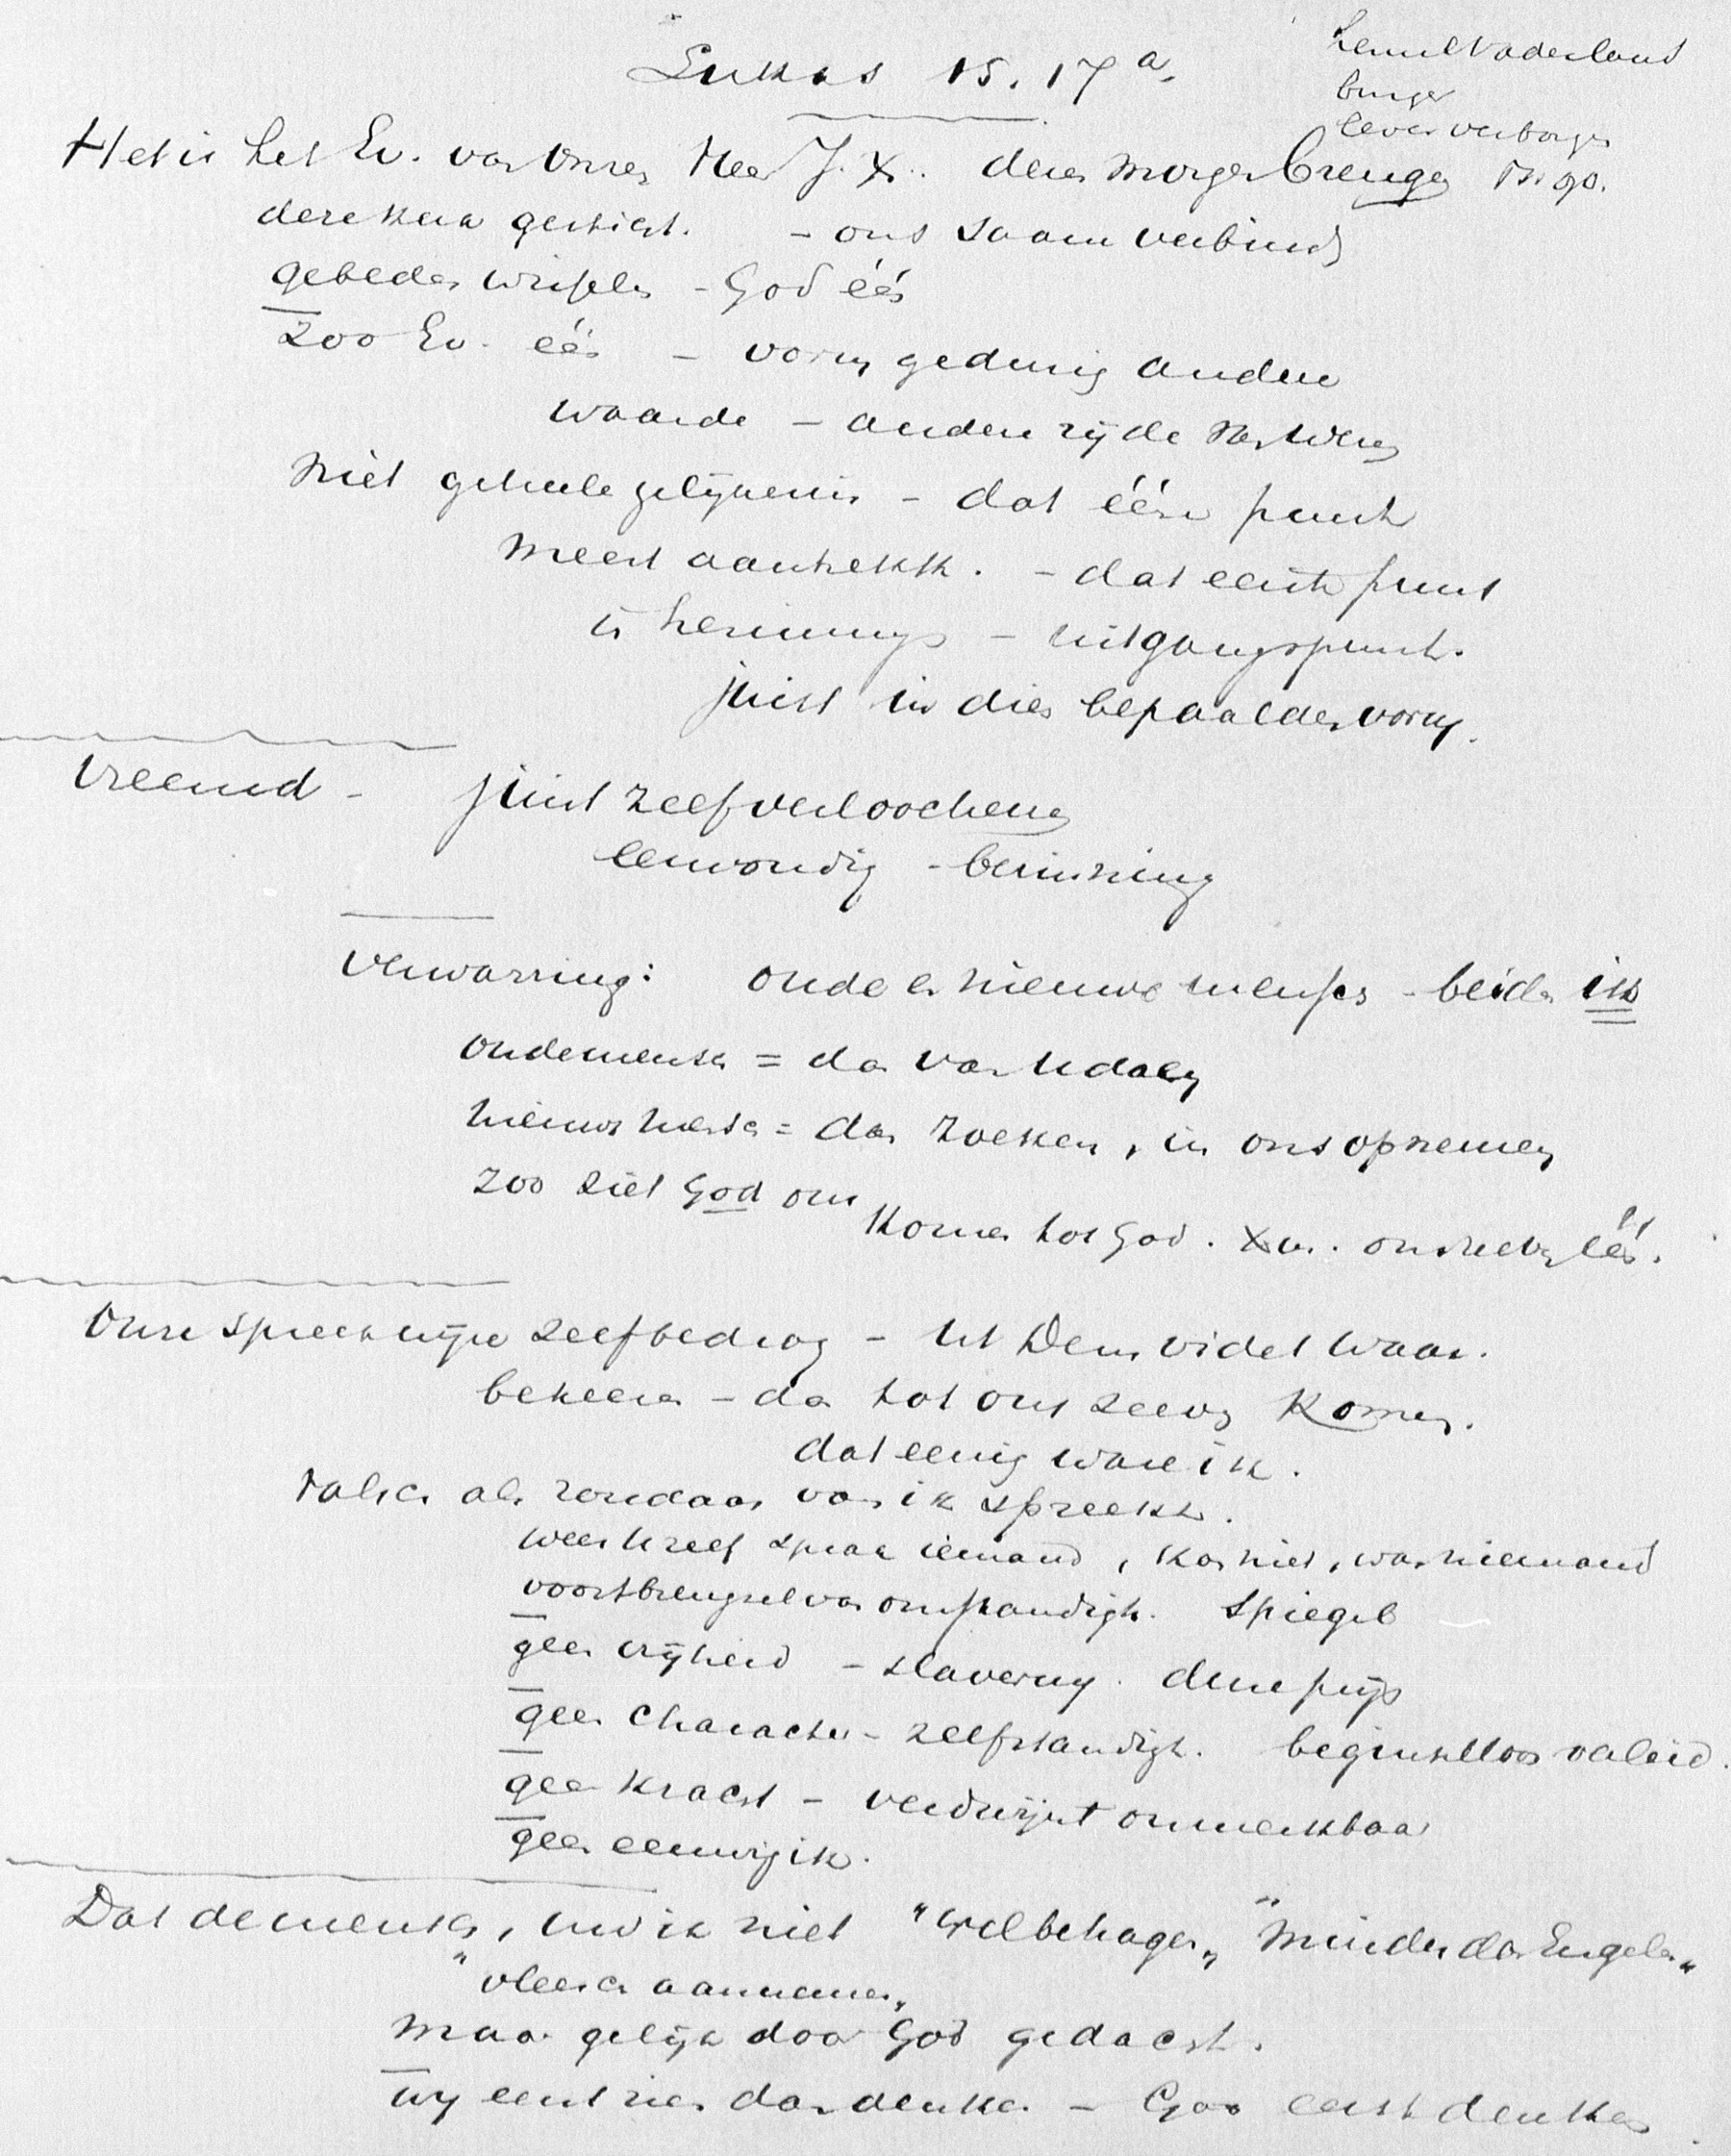 Lukas 15. 17a.
hemel Vaderland
burger
leven verborgen
Het is het Ev. van Onzen Heer J. X. dezen morgen brengen
deze kerk gesticht. - ons saam verbindt
gebeden wisselen - God één
Zoo Ev. één - vorm gedurig andere
waarde - andere zijde
Niet geheele gelijkenis - dat ééne punt
meest aantrekk. - dat eerste punt
is herinnings - uitgangspunt.
juist in dien bepaalden vorm.
Vreemd - juist zelfverloochening
eenvoudig - bezinning
Verwarring: oude en nieuwe mensch - beiden ik
oude mensch = dan van
nieuwe mensch = dan zoeken, in ons opnemen
Zoo ziet God ons
Komen tot God. één.
Onze spreekwijze zelfbedrog - uit Dem videt waar.
bekeeren - dan tot ons zelven komen.
dat eenig ware ik.
valsch als zondaar van ik spreekt.
sprak iemand, kon niet, was niemand
voortbrengsel van omstandigh. Spiegel
geen vrijheid - slaverny. dure prijs
geen character - zelfstandigh. beginselloos
geen kracht - verdwijnt onmerkbaar
geen eeuwig ik.
Dat de mensch, uw ik niet "welbehagen" "minder dan Engelen"
"vleesch aannemen"
maar gelijk door God gedacht.
wy eerst zien dan denken - God eerst denken